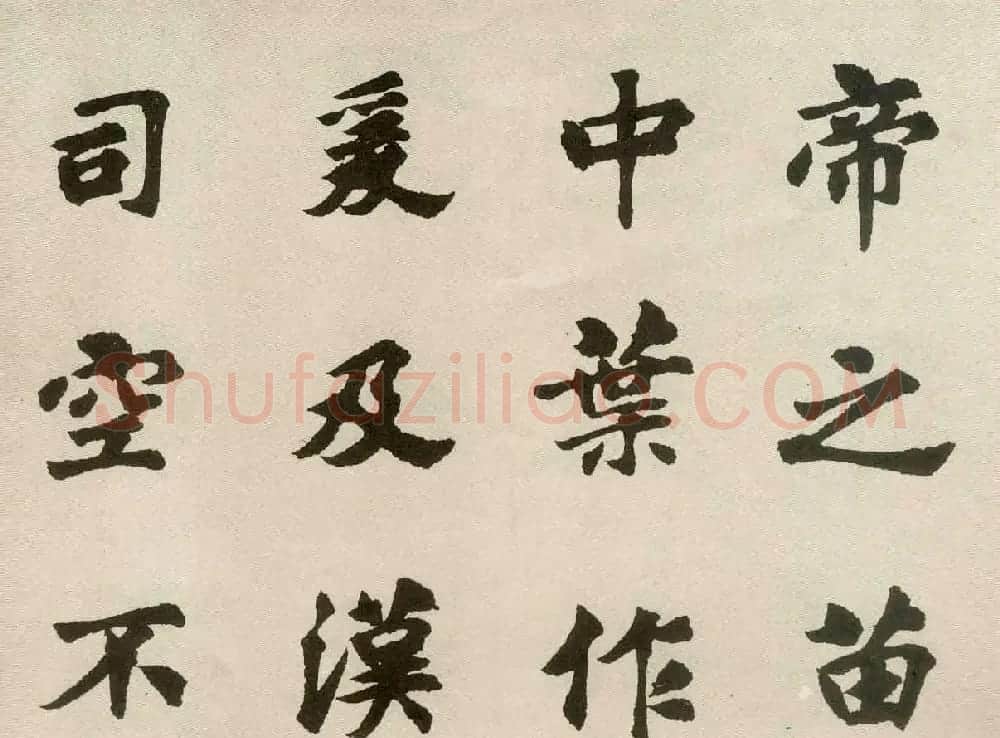 帝之苗
中葉作
爰及漢
司空不
Shufaziliao.COM